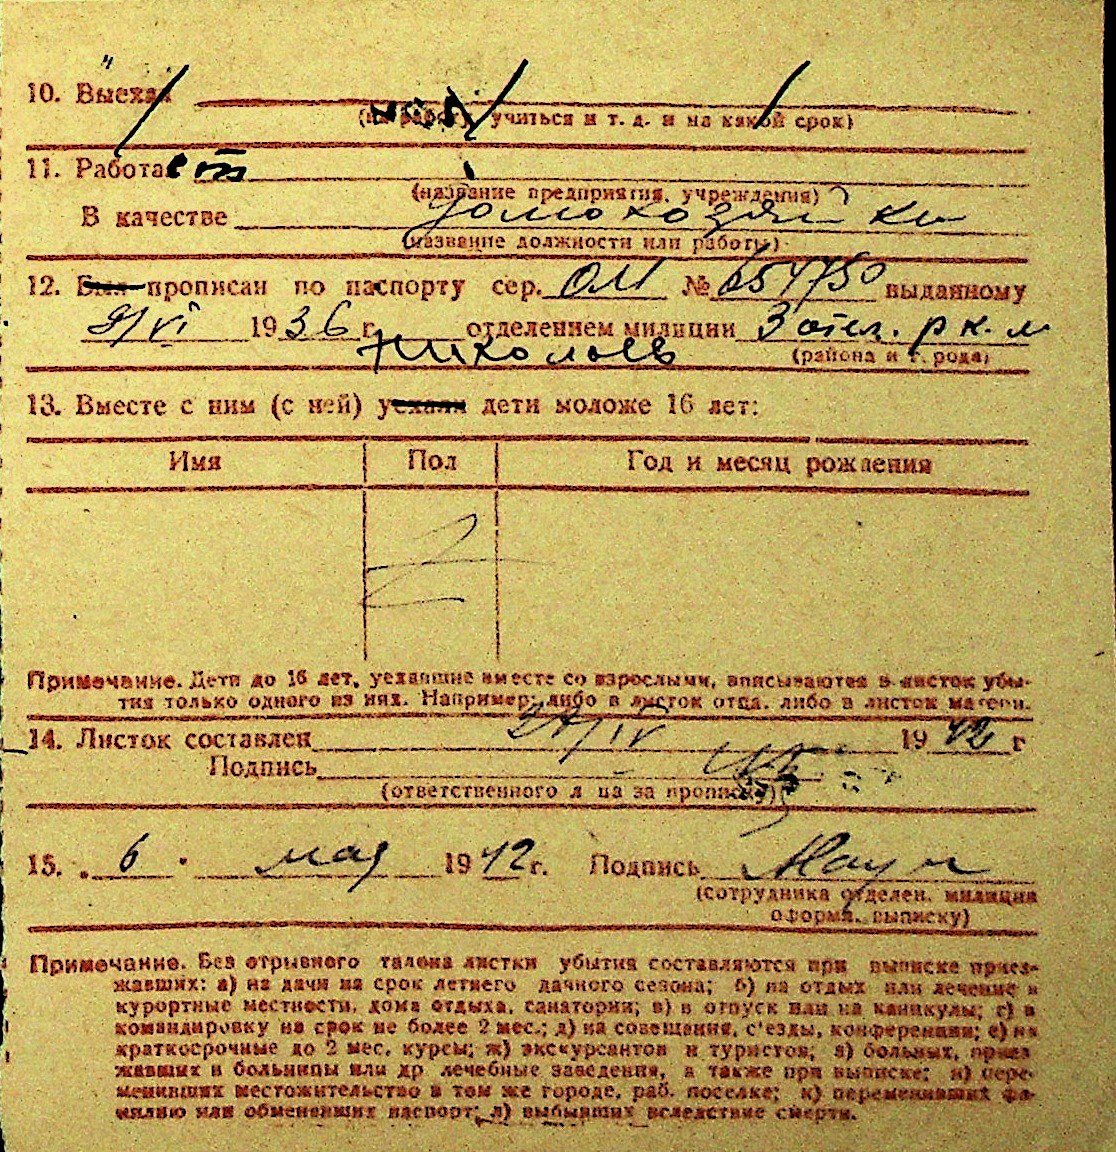 10. Выехал
(на работу, учиться и т. д. и на какой срок)
11. Работает
(название предприятия, учреждения)
В качестве домохозяйка
(название должности или работы)
12. Был прописан по паспорту сер. ОМ № 654750 выданному
9/VI 1936 г. отделением милиции 3 отел. р к. м
Николаев (района и города)
13. Вместе с ним (с ней) уехали дети моложе 16 лет:
Имя Пол Год и месяц рождения
Z
Примечание. Дети до 16 лет, уехавшие вместе со взрослыми, вписываются в листок убы-
тия только одного из них. Например: либо в листок отца, либо в листок матери.
14. Листок составлен 27/IV 1942 г
Подпись
(ответственного лица за прописку)
15. „6" мая 1942 г. Подпись
(сотрудника отделен. милиции
оформ. выписку)
Примечание. Без отрывного талона листки убытия составляются при выписке приез-
жавших: а) на дачи на срок летнего дачного сезона; б) на отдых или лечение в
курортные местности, дома отдыха, санатории; в) в отпуск или на каникулы; г) в
командировку на срок не более 2 мес.; д) на совещания, с'езды, конференции; е) на
краткосрочные до 2 мес. курсы; ж) экскурсантов и туристов; з) больных, приез-
жавших в больницы или др лечебные заведения, а также при выписке; и) пере-
менивших местожительство в том же городе, раб. поселке; к) переменивших фа-
милию или обменявших паспорт; л) выбывших вследствие смерти.